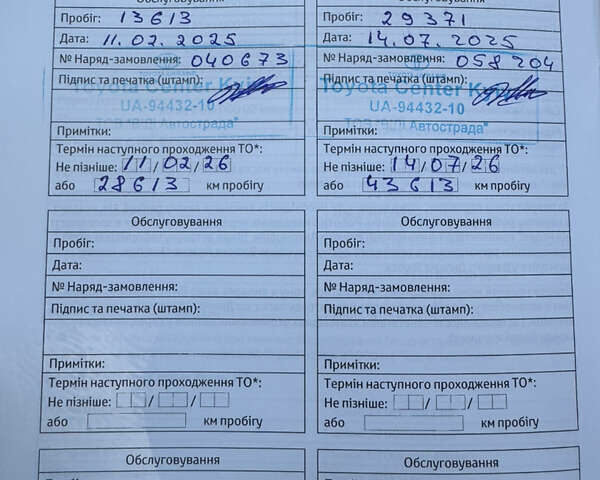 Обслуговування
Пробіг: 13613
Дата: 11.02.2025
№ Наряд-замовлення: 040673
Підпис та печатка (штамп):
Toyota Center Kyiv
UA-94432-10
ТОВ "ВіДі Автострада"
Примітки:
Термін наступного проходження ТО*:
Не пізніше: 11/02/26
або 28613 км пробігу
Обслуговування
Пробіг: 29371
Дата: 14.07.2025
№ Наряд-замовлення: 058204
Підпис та печатка (штамп):
Toyota Center Kyiv
UA-94432-10
ТОВ "ВіДі Автострада"
Примітки:
Термін наступного проходження ТО*:
Не пізніше: 14/07/26
або 43613 км пробігу
Обслуговування
Пробіг:
Дата:
№ Наряд-замовлення:
Підпис та печатка (штамп):
Примітки:
Термін наступного проходження ТО*:
Не пізніше: / /
або км пробігу
Обслуговування
Пробіг:
Дата:
№ Наряд-замовлення:
Підпис та печатка (штамп):
Примітки:
Термін наступного проходження ТО*:
Не пізніше: / /
або км пробігу
Обслуговування
Обслуговування